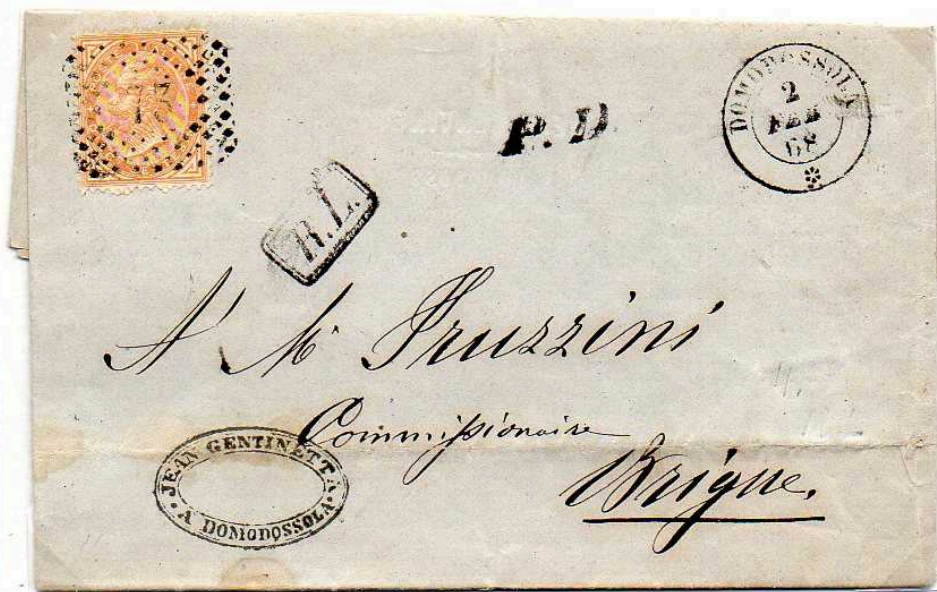 P. D
DOMODOSSOLA
2
FEB
68
R.L.
A M. Fruzzini
Commissionaire
Brigue.
JEAN GENTINETTA
A DOMODOSSOLA